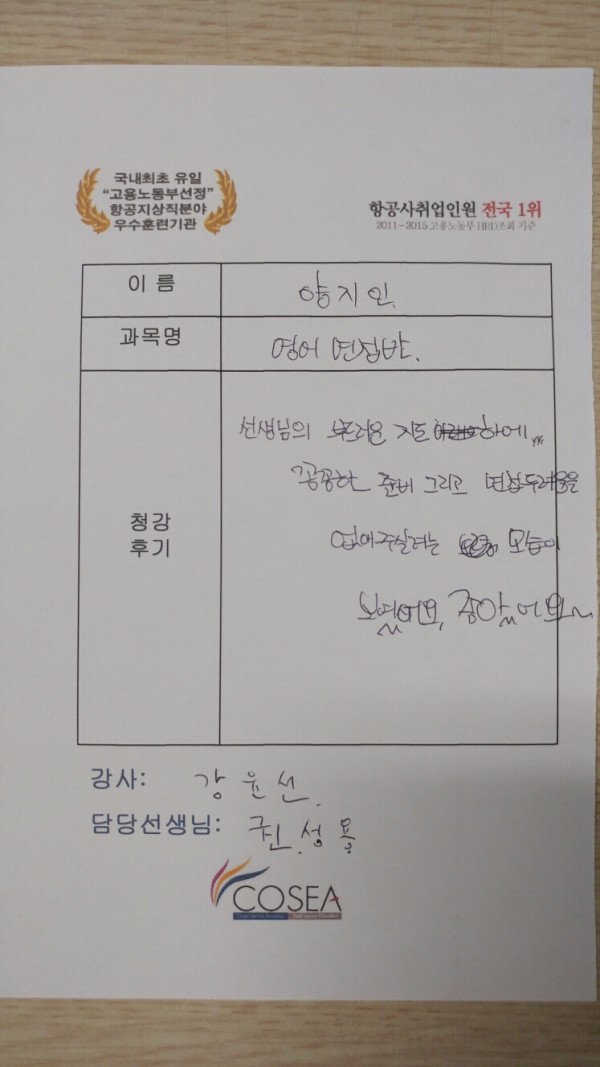 국내최초 유일
"고용노동부선정"
항공지상직분야
우수훈련기관
항공사취업인원 전국 1위
2011~2015고용노동부 HRD조회 기준
이 름
양지인.
과목명
영어 면접반.
청강
후기
선생님의 부드러운 지도 하에,,
꼼꼼한 준비 그리고 면접두려움을
없애주실려는 모습이
보였어요, 좋았어요~
강사: 강 윤 선.
담당선생님: 권 성 용
COSEA